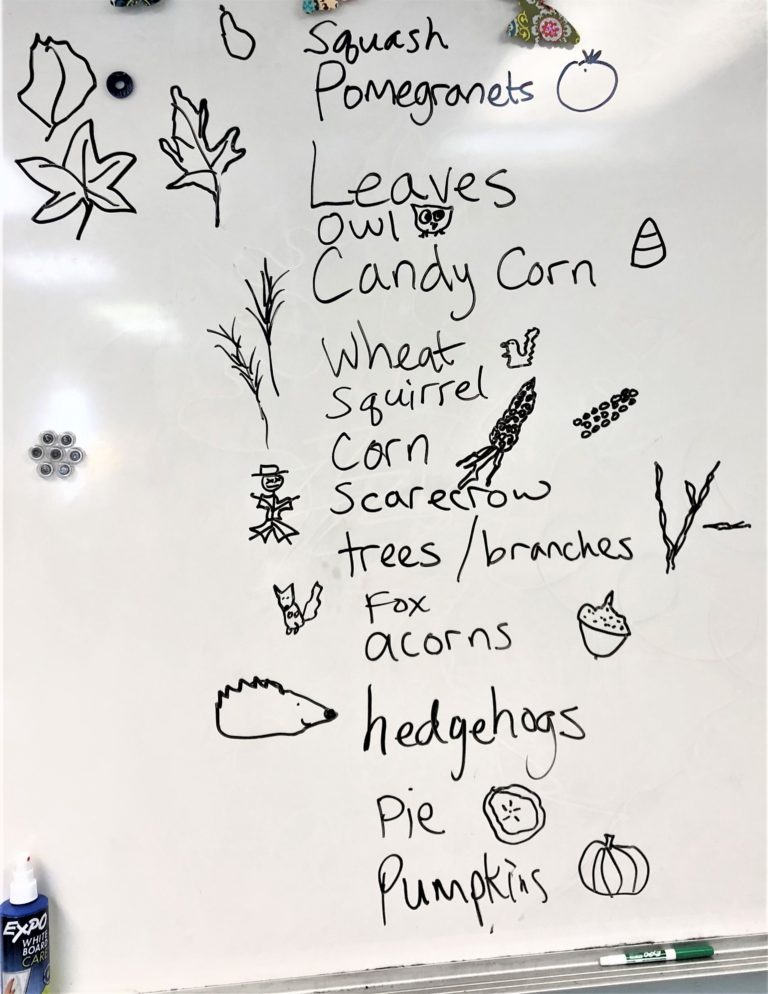 Squash
Pomegranets
Leaves
owl
Candy Corn
Wheat
Squirrel
Corn
Scarecrow
trees / branches
Fox
acorns
hedgehogs
Pie
Pumpkins
EXPO
WHITE
BOARD
CARE